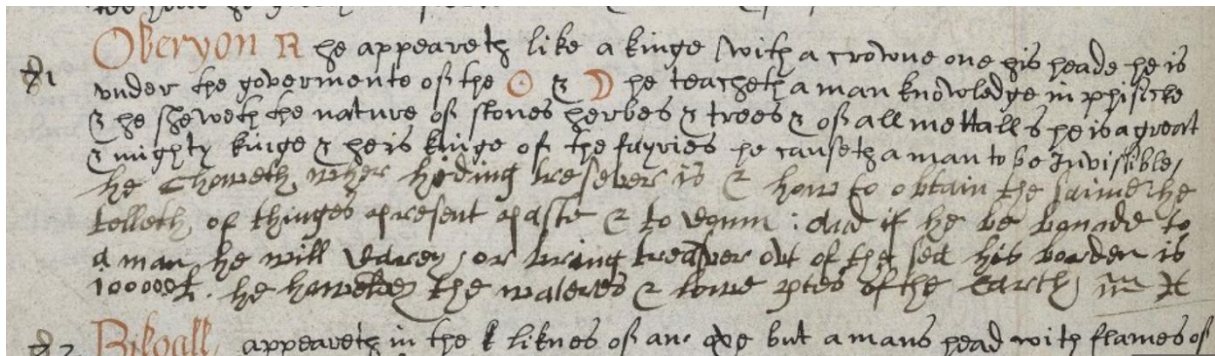 81 Oberyon R he appeareth like a kinge with a crowne one his heade he is
vnder the govermente of the ☉ & ☽ he teacheth a man knowledge in phisicke
& he sheweth the nature of stones herbes & trees & of all mettalls he is a great
& mighty kinge & he is kinge of the fayries he causeth a man to be Invissible,
he showeth wher hiding treseber is & how to obtain the saime he
telleth of thinges present paste & to comm : and if he be to
a man he will carey or bring treasver out of the sea his is
the wateres & lowe ptes of the earth
82 Bilgall appeareth in the liknes of an oxe but a mans head with flames of